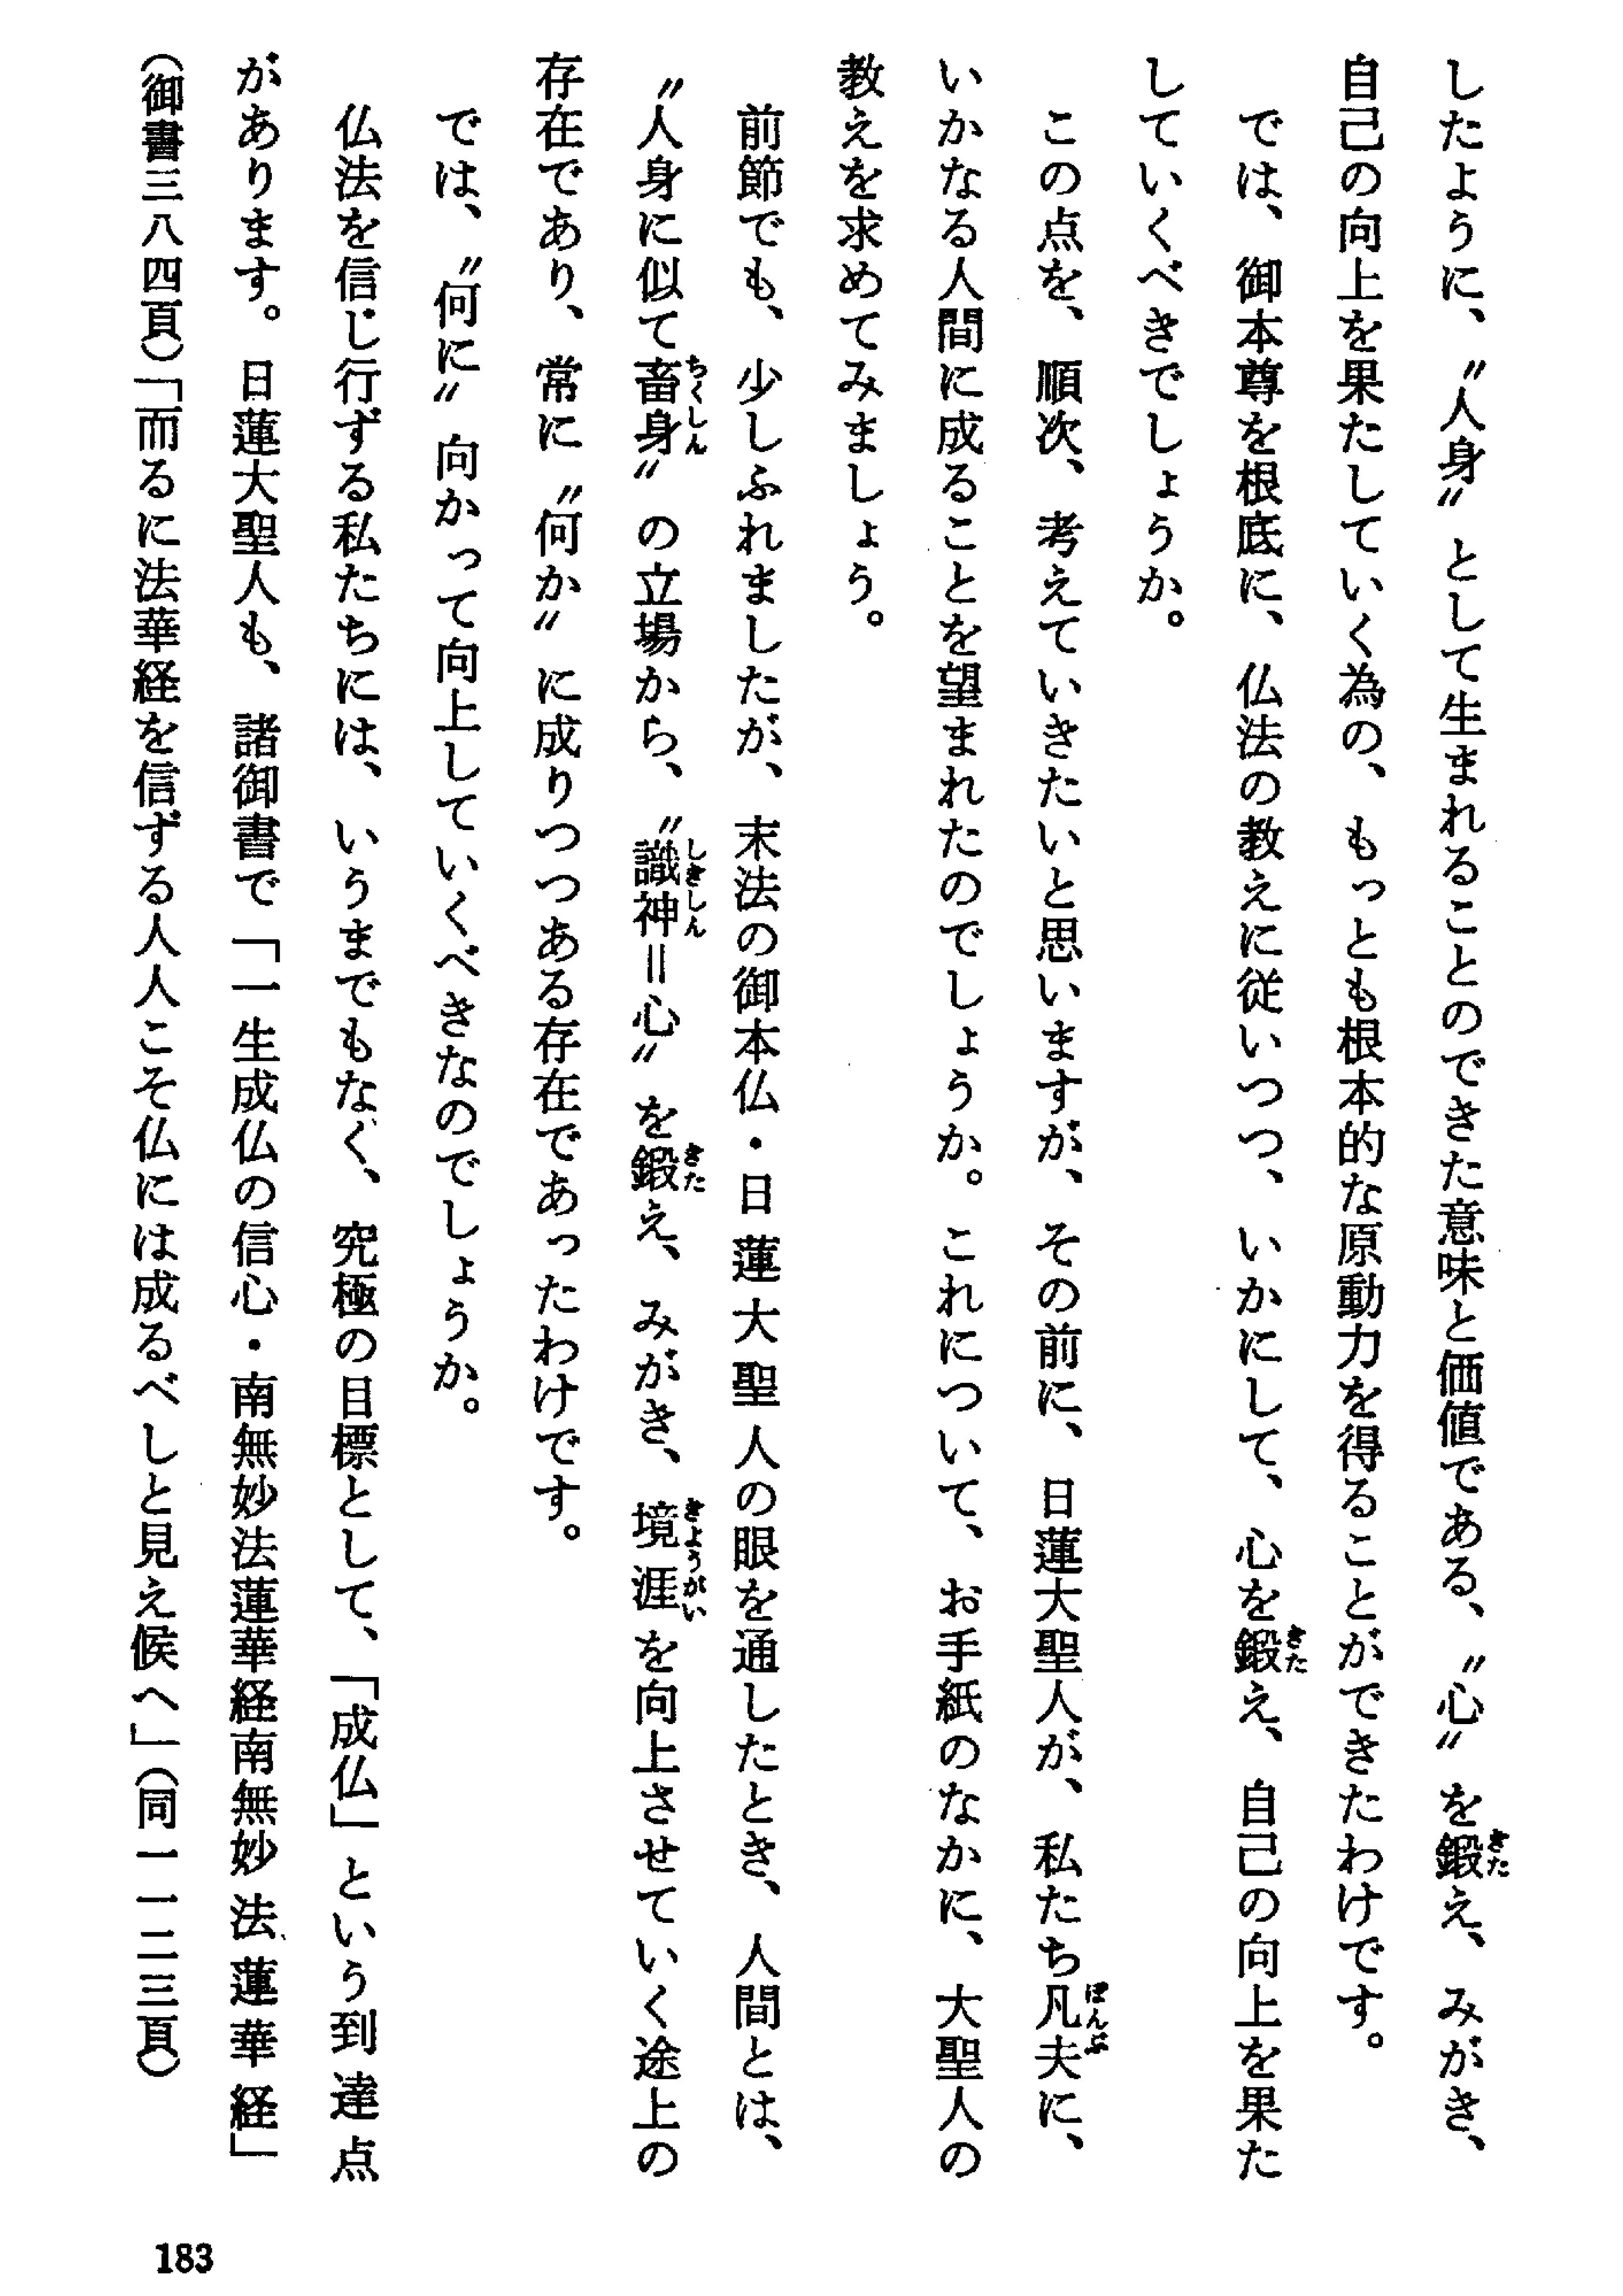 したように、〝人身〟として生まれることのできた意味と価値である、〝心〟を鍛え、みがき、
自己の向上を果たしていく為の、もっとも根本的な原動力を得ることができたわけです。
では、御本尊を根底に、仏法の教えに従いつつ、いかにして、心を鍛え、自己の向上を果た
していくべきでしょうか。
この点を、順次、考えていきたいと思いますが、その前に、日蓮大聖人が、私たち凡夫に、
いかなる人間に成ることを望まれたのでしょうか。これについて、お手紙のなかに、大聖人の
教えを求めてみましょう。
前節でも、少しふれましたが、末法の御本仏・日蓮大聖人の眼を通したとき、人間とは、
〝人身に似て畜身〟の立場から、〝識神＝心〟を鍛え、みがき、境涯を向上させていく途上の
存在であり、常に〝何か〟に成りつつある存在であったわけです。
では、〝何に〟向かって向上していくべきなのでしょうか。
仏法を信じ行ずる私たちには、いうまでもなく、究極の目標として、「成仏」という到達点
があります。日蓮大聖人も、諸御書で「一生成仏の信心・南無妙法蓮華経南無妙法蓮華経」
（御書三八四頁）「而るに法華経を信ずる人人こそ仏には成るべしと見え候へ」（同一一二三頁）
183